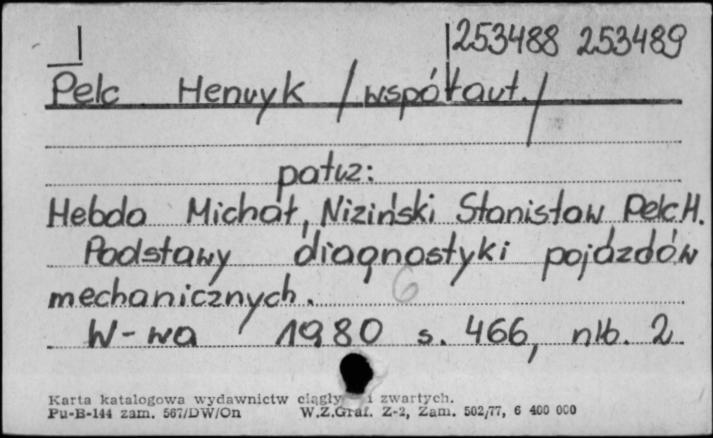 253488 253489
Pelc Henryk /współaut./
patrz:
Hebda Michał, Niziński Stanisław Pelc H.
Podstawy diagnostyki pojazdów
mechanicznych. 6
W-wa 1980 s. 466, nlb. 2
Karta katalogowa wydawnictw ciągły i zwartych.
Pu-B-144 zam. 567/DW/On W.Z.Graf. Z-2, Zam. 502/77, 6 400 000